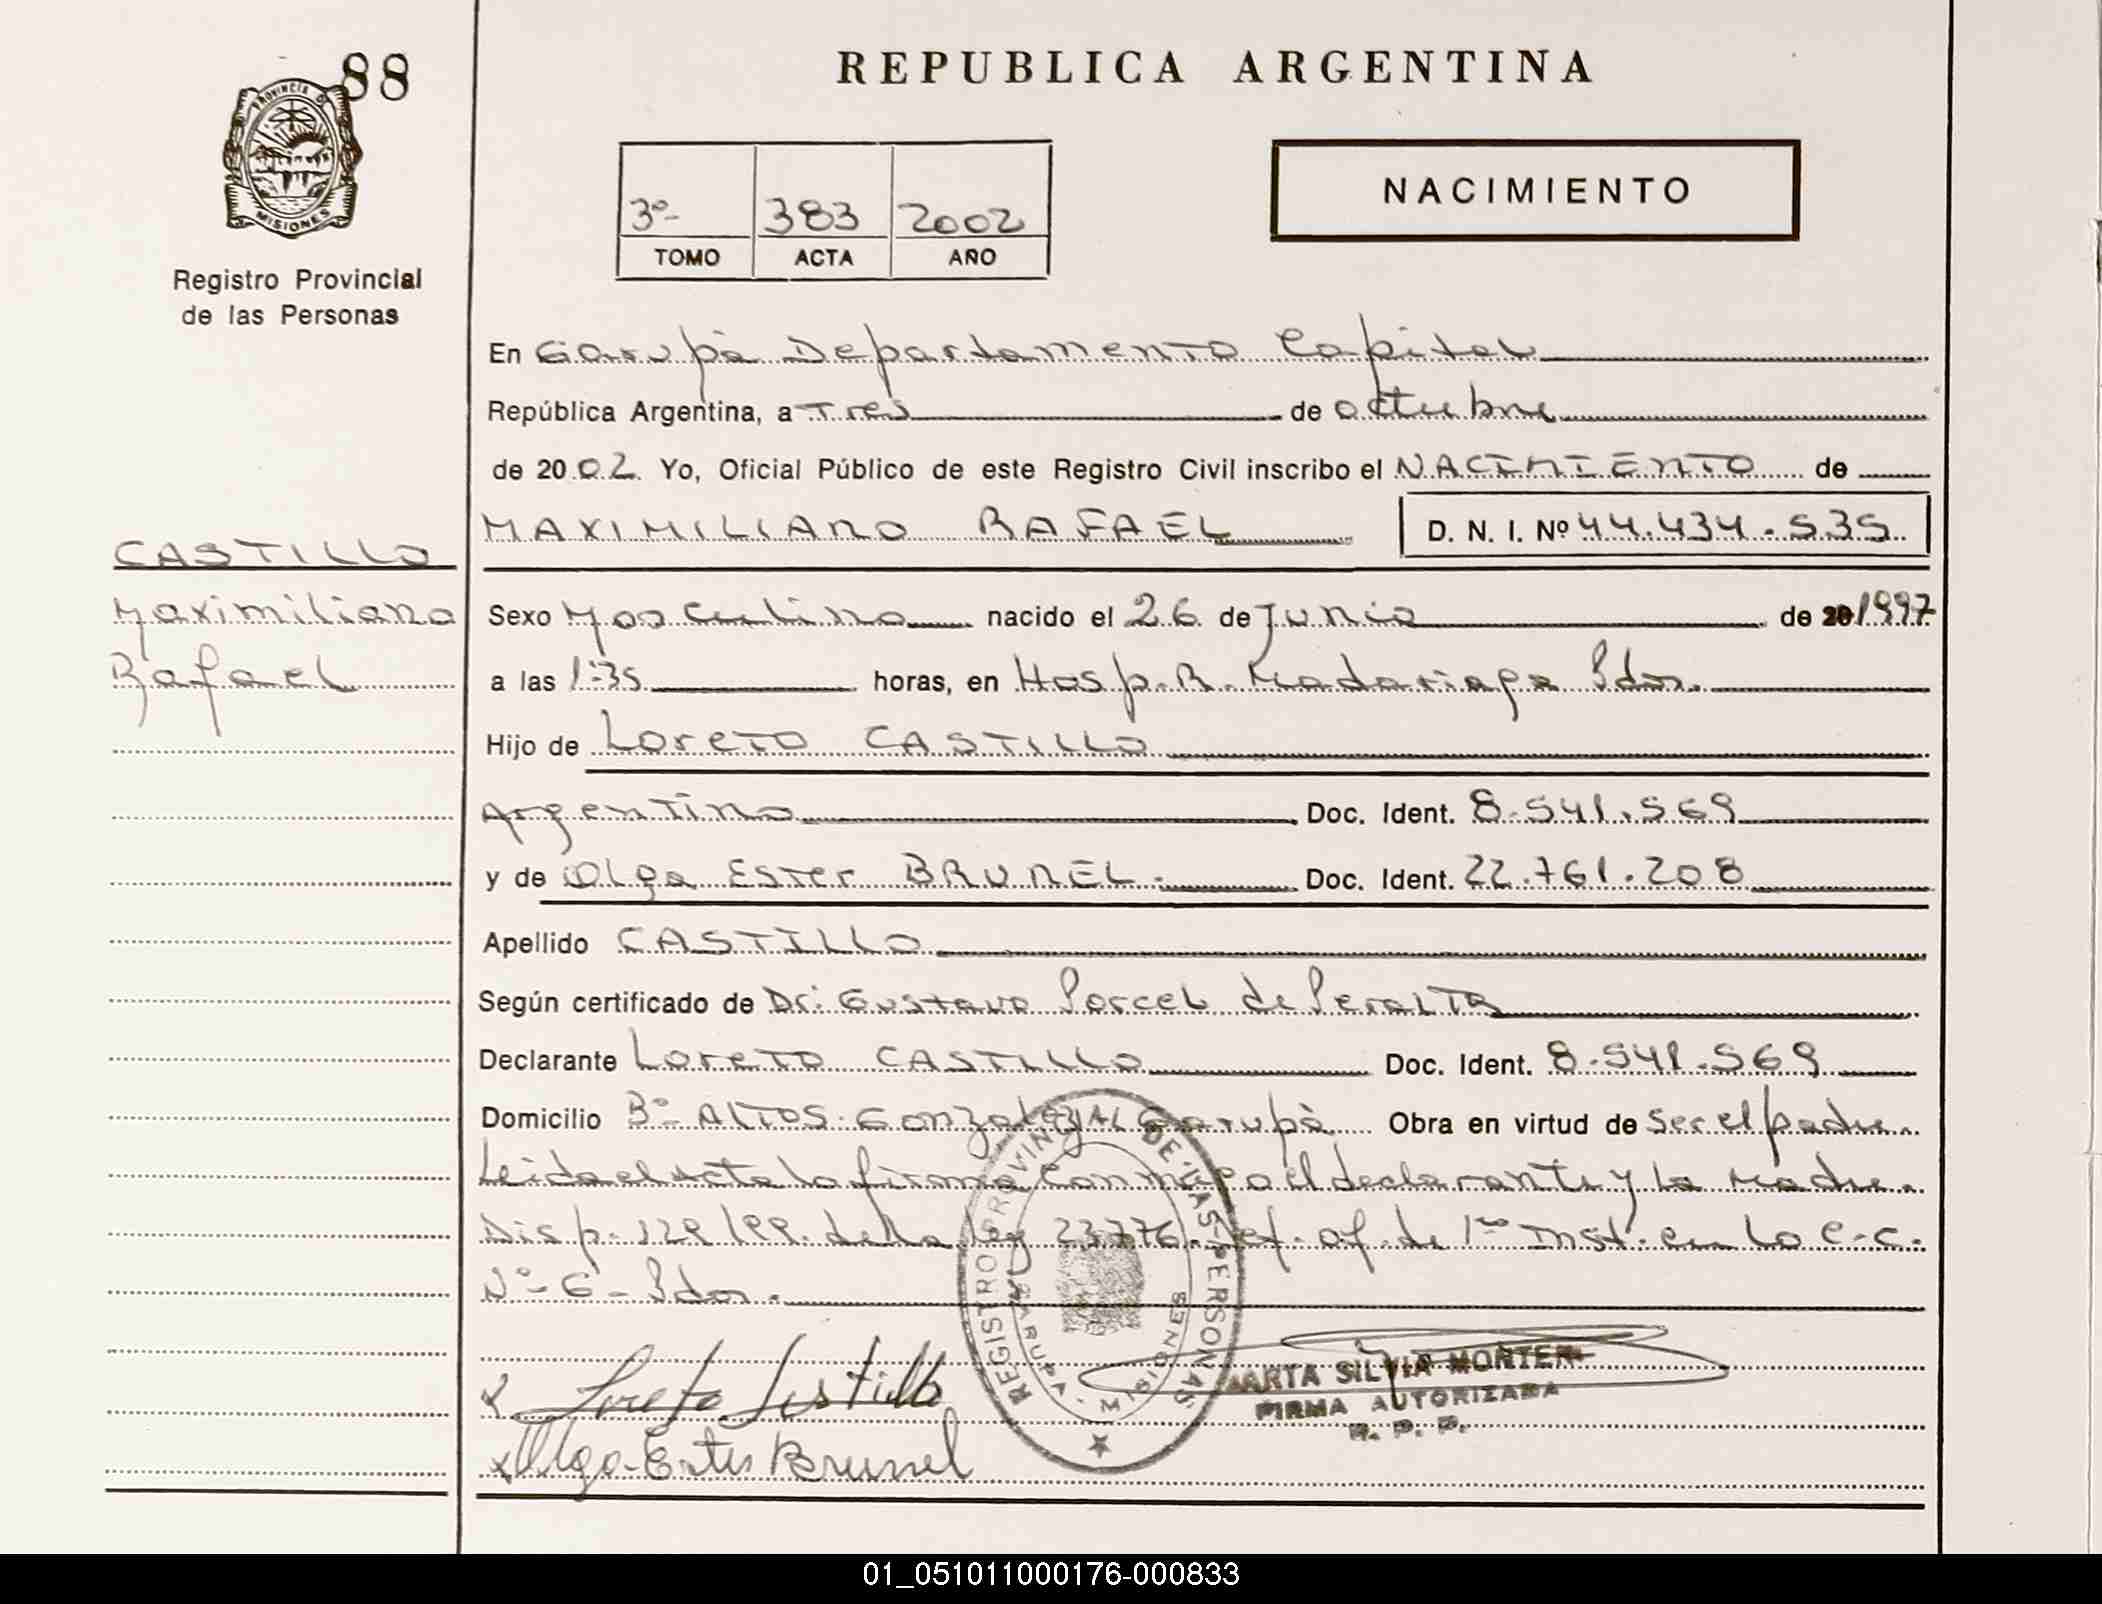 88
REPUBLICA ARGENTINA
PROVINCIA DE
MISIONES
Registro Provincial
de las Personas
3º- 383 2002
TOMO ACTA AÑO
NACIMIENTO
En Garupà Departamento Capital
República Argentina, a Tres de octubre
de 2002. Yo, Oficial Público de este Registro Civil inscribo el NACIMIENTO de
MAXIMILIANO RAFAEL D. N. I. Nº 44.434.535
CASTILLO
Maximiliano
Rafael
Sexo Masculino nacido el 26 de Junio de 20 1997
a las 1:35 horas, en Hosp. R. Madariaga Pdas.
Hijo de Loreto CASTILLO
Argentino Doc. Ident. 8.541.569
y de Olga Ester BRUNEL. Doc. Ident. 22.761.208
Apellido CASTILLO
Según certificado de Dr: Gustavo Porcel de Peralta
Declarante Loreto CASTILLO Doc. Ident. 8.541.569
Domicilio Bº ALTOS Gonzalez Garupà Obra en virtud de Ser el padre.
Leida el acta la firma conmigo el declarante y la Madre.
Disp. 129/99. de la ley 23.776. of. de 1ra Inst. en lo C.C.
Nº-6-Pdas.
REGISTRO PROVINCIAL DE LAS PERSONAS
GARUPA - MISIONES
x Loreto Castillo
MARTA SILVIA MONTER
FIRMA AUTORIZADA
R. P. P.
x Olga Ester Brunel
01_051011000176-000833